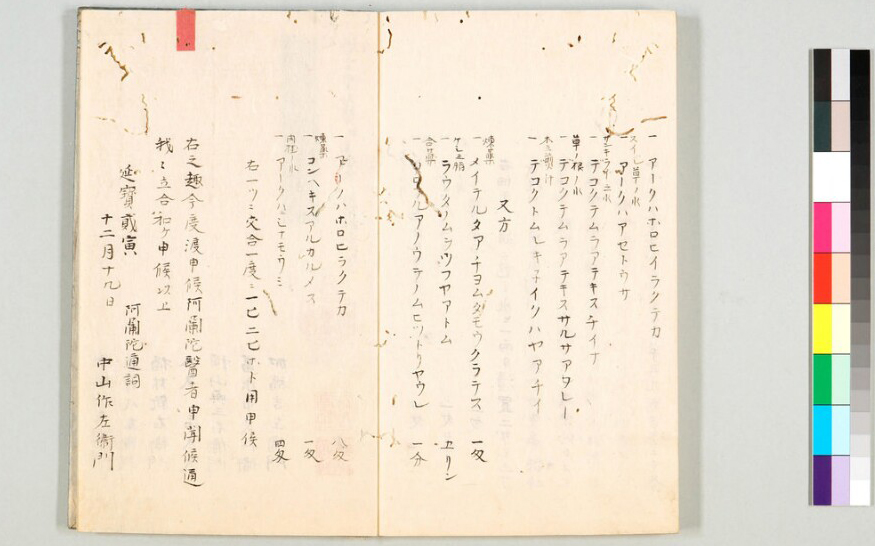 一 アークハホロヒイラクテカ
スイレ草ノ水
一 アークハアセトウサ
サンキライ三水
一 テコクテムラアテキスチイナ
草ノ根ノ水
一 テコクテムラアテキスサルサアタレー
木ヲ煎汁
一 テコクトムレキ子イリハヤアチイ
又方
煉薬
一 メイテルタアチヨムタモウクラテス 一匁
一 ラウタノムラツフヤアトム 五リン
合薬
一 ロルアノウテノムヒツトリヤウレ 一分
一 アークハホロヒラクテカ 八匁
煉薬
一 コンハキスアルカルメス 一匁
肉桂ノ水
一 アークハシナモウミ 四匁
右一ツニ交合一度ニ一匕二匕ホト用申候
右之趣今度渡申候阿蘭陀醫者申聞候通
我々立合和ケ申候以上
延寶貳寅 阿蘭陀通詞
十二月十九日 中山作左衛門